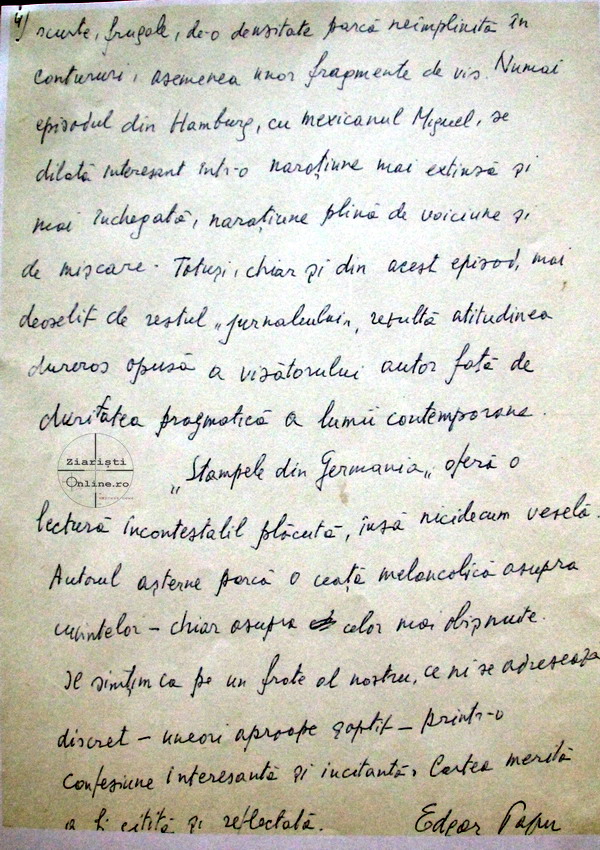 4)
scurte, frugale, de-o densitate parcă neîmplinită în
contururi, asemenea unor fragmente de vis. Numai
episodul din Hamburg, cu mexicanul Miguel, se
dilată interesant într-o narațiune mai extinsă și
mai închegată, narațiune plină de voiciune și
de mișcare. Totuși, chiar și din acest episod, mai
deoselit de restul „jurnalului„, rezultă atitudinea
dureros opusă a visătorului autor față de
duritatea pragmatică a lumii contemporane.
Ziariști
Online.ro
„Stampele din Germania„ oferă o
lectură incontestabil plăcută, însă nicidecum veselă.
Autorul așterne parcă o ceață melancolică asupra
cuvintelor – chiar asupra celor mai obișnuite.
Îl simțim ca pe un frate al nostru, ce ni se adresează
discret – uneori aproape șoptit – printr-o
confesiune interesantă și incitantă. Cartea merită
a fi citită și reflectată. Edgar Papu